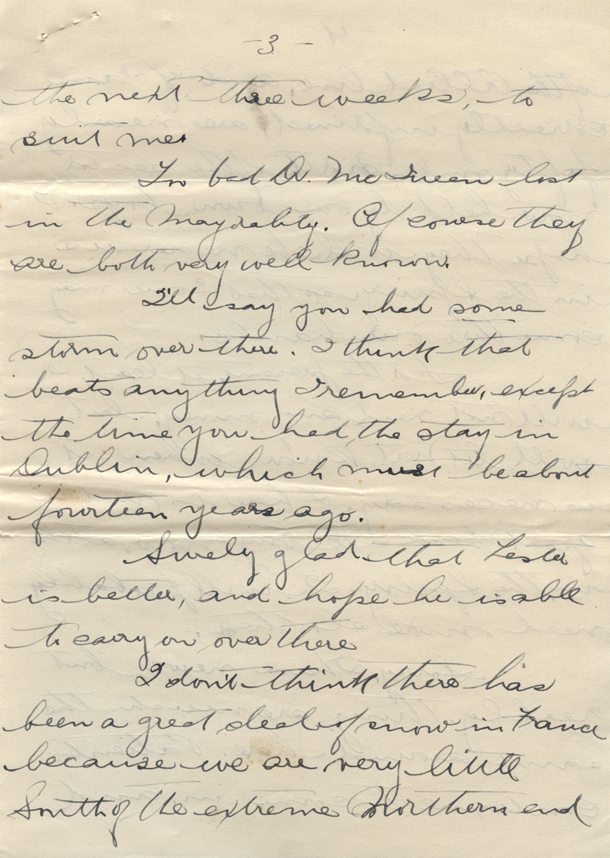 -3-
the next three weeks, to
suit me.
Too bad Dr. McGreen lost
in the Mayorality. Of course they
are both very well known.
I'll say you had some
storm over there. I think that
beats anything I remember, except
the time you had the stay in
Dublin, which must be about
fourteen years ago.
Surely glad that Lester
is better, and hope he is able
to carry on over there
I don't think there has
been a great deal of snow in France
because we are very little
South of the extreme Northern end